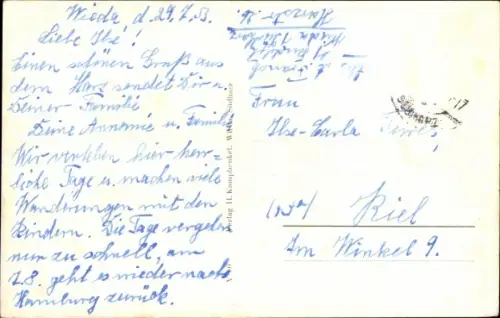 Wieda d. 29.7.53.
Liebe Ilse!
Einen schönen Gruß aus
dem Harz sendet Dir u.
Deiner Familie
Deine Annemie u. Familie
Wir verleben hier herr-
liche Tage u. machen viele
Wanderungen mit den
Kindern. Die Tage vergehen
nur zu schnell, am
1.8. geht es wieder nach
Hamburg zurück.
Verlag H. Kamphenkel,
Wieda / Südharz
Harzstr. 26
Frau
Ilse-Carla
Kiel
Im Winkel 9.